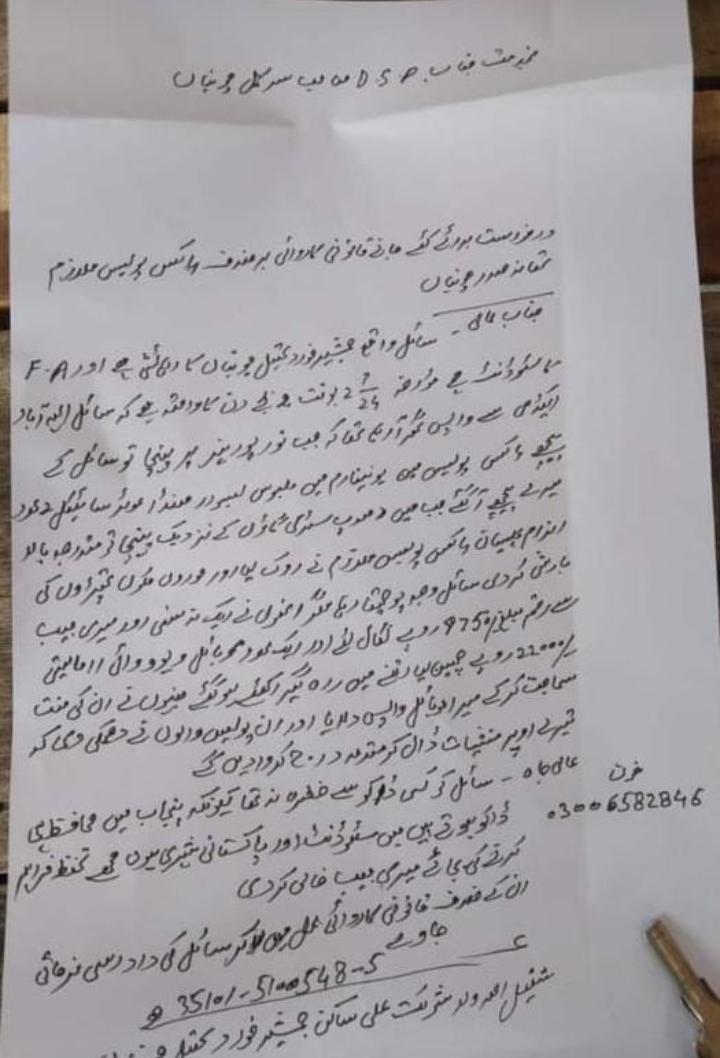 بخدمت جناب D S P صاحب سرکل چونیاں
درخواست برائے کئے جانے قانونی کاروائی برخلاف 4 کس پولیس ملازم
تھانہ صدر چونیاں
جناب عالی - سائل واقع جمشیر خورد تحصیل چونیاں کا رہائشی ہے اور F.A
کا سٹوڈنٹ ہے مؤرخہ 2 7/24 بوقت بجے دن کا واقعہ ہے کہ سائل الہ آباد
اکیڈمی سے واپس گھر آ رہا تھا کہ جب نور پور نہر پر پہنچا تو سائل کے
پیچھے 4 کس پولیس میں یونیفارم میں ملبوس ہنڈا موٹر سائیکل 2 عدد
میرے پیچھے آ گئے جب میں گاؤں کے نزدیک پہنچا تو مندرجہ بالا
الزام علیہان 4 کس پولیس ملازم نے روک لیا اور مکوں تھپڑاوں کی
بارش کر دی سائل وجہ پوچھتا رہا مگر انہوں نے ایک نہ سنی اور میری جیب
سے رقم مبلغ /9750 روپے نکال لئے اور ایک عدد موبائل ویوو مالیتی
/22000 روپے چھین لیا اتنے میں راہ گیر اکٹھے ہو گئے جنہوں نے ان کی منت
سماجت کر کے میرا موبائل واپس دلایا اور ان پولیس والوں نے دھمکی دی کہ
تیرے اوپر منشیات ڈال کر مقدمہ درج کروا دیں گے
عالی جاہ - سائل کو کسی ڈاکو سے خطرہ نہ تھا کیونکہ پنجاب میں محافظ ہی
ڈاکو ہوتے ہیں میں سٹوڈنٹ اور پاکستانی شہری ہوں مجھے تحفظ فراہم
کرنے کی بجائے میری جیب خالی کر دی
ان کے خلاف قانونی کاروائی عمل میں لا کر سائل کی داد رسی فرمائی
جاوے
فون
03006582846
35101-5100548-5
ولد شوکت علی ساکن جمشیر خورد تحصیل